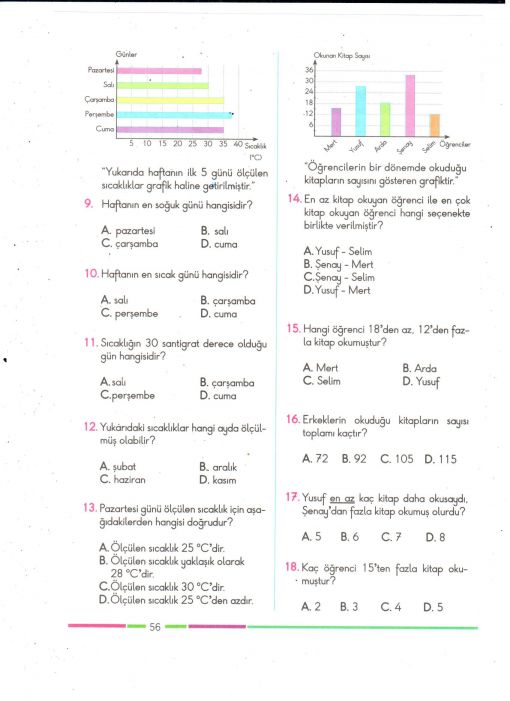 Günler
Pazartesi
Salı
Çarşamba
Perşembe
Cuma
5 10 15 20 25 30 35 40 Sıcaklık
(°C)
"Yukarıda haftanın ilk 5 günü ölçülen
sıcaklıklar grafik haline getirilmiştir."
9. Haftanın en soğuk günü hangisidir?
A. pazartesi B. salı
C. çarşamba D. cuma
10. Haftanın en sıcak günü hangisidir?
A. salı B. çarşamba
C. perşembe D. cuma
11. Sıcaklığın 30 santigrat derece olduğu
gün hangisidir?
A. salı B. çarşamba
C.perşembe D. cuma
12. Yukarıdaki sıcaklıklar hangi ayda ölçül-
müş olabilir?
A. şubat B. aralık
C. haziran D. kasım
13. Pazartesi günü ölçülen sıcaklık için aşa-
ğıdakilerden hangisi doğrudur?
A. Ölçülen sıcaklık 25 °C'dir.
B. Ölçülen sıcaklık yaklaşık olarak
28 °C'dir.
C.Ölçülen sıcaklık 30 °C'dir.
D.Ölçülen sıcaklık 25 °C'den azdır.
Okunan Kitap Sayısı
36
30
24
18
12
6
Mert Yusuf Arda Şenay Selim Öğrenciler
"Öğrencilerin bir dönemde okuduğu
kitapların sayısını gösteren grafiktir."
14. En az kitap okuyan öğrenci ile en çok
kitap okuyan öğrenci hangi seçenekte
birlikte verilmiştir?
A. Yusuf - Selim
B. Şenay - Mert
C.Şenay - Selim
D.Yusuf - Mert
15. Hangi öğrenci 18'den az, 12'den faz-
la kitap okumuştur?
A. Mert B. Arda
C. Selim D. Yusuf
16. Erkeklerin okuduğu kitapların sayısı
toplamı kaçtır?
A. 72 B. 92 C. 105 D. 115
17. Yusuf en az kaç kitap daha okusaydı,
Şenay'dan fazla kitap okumuş olurdu?
A. 5 B. 6 C. 7 D. 8
18. Kaç öğrenci 15'ten fazla kitap oku-
muştur?
A. 2 B. 3 C. 4 D. 5
56